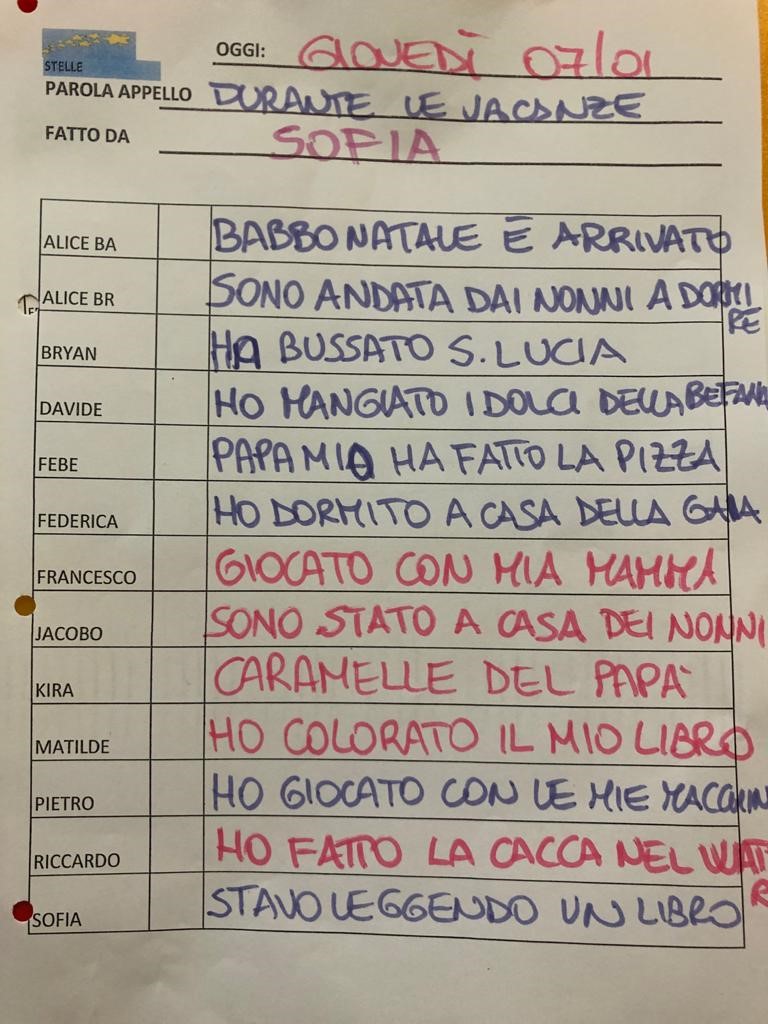 STELLE
OGGI: GIOVEDÌ 07/01
PAROLA APPELLO DURANTE LE VACANZE
FATTO DA SOFIA
ALICE BA BABBO NATALE È ARRIVATO
ALICE BR SONO ANDATA DAI NONNI A DORMIRE
BRYAN HA BUSSATO S. LUCIA
DAVIDE HO MANGIATO I DOLCI DELLA BEFANA
FEBE PAPA MIO HA FATTO LA PIZZA
FEDERICA HO DORMITO A CASA DELLA GAIA
FRANCESCO GIOCATO CON MIA MAMMA
JACOBO SONO STATO A CASA DEI NONNI
KIRA CARAMELLE DEL PAPÀ
MATILDE HO COLORATO IL MIO LIBRO
PIETRO HO GIOCATO CON LE MIE MACCHIN
RICCARDO HO FATTO LA CACCA NEL
SOFIA STAVO LEGGENDO UN LIBRO